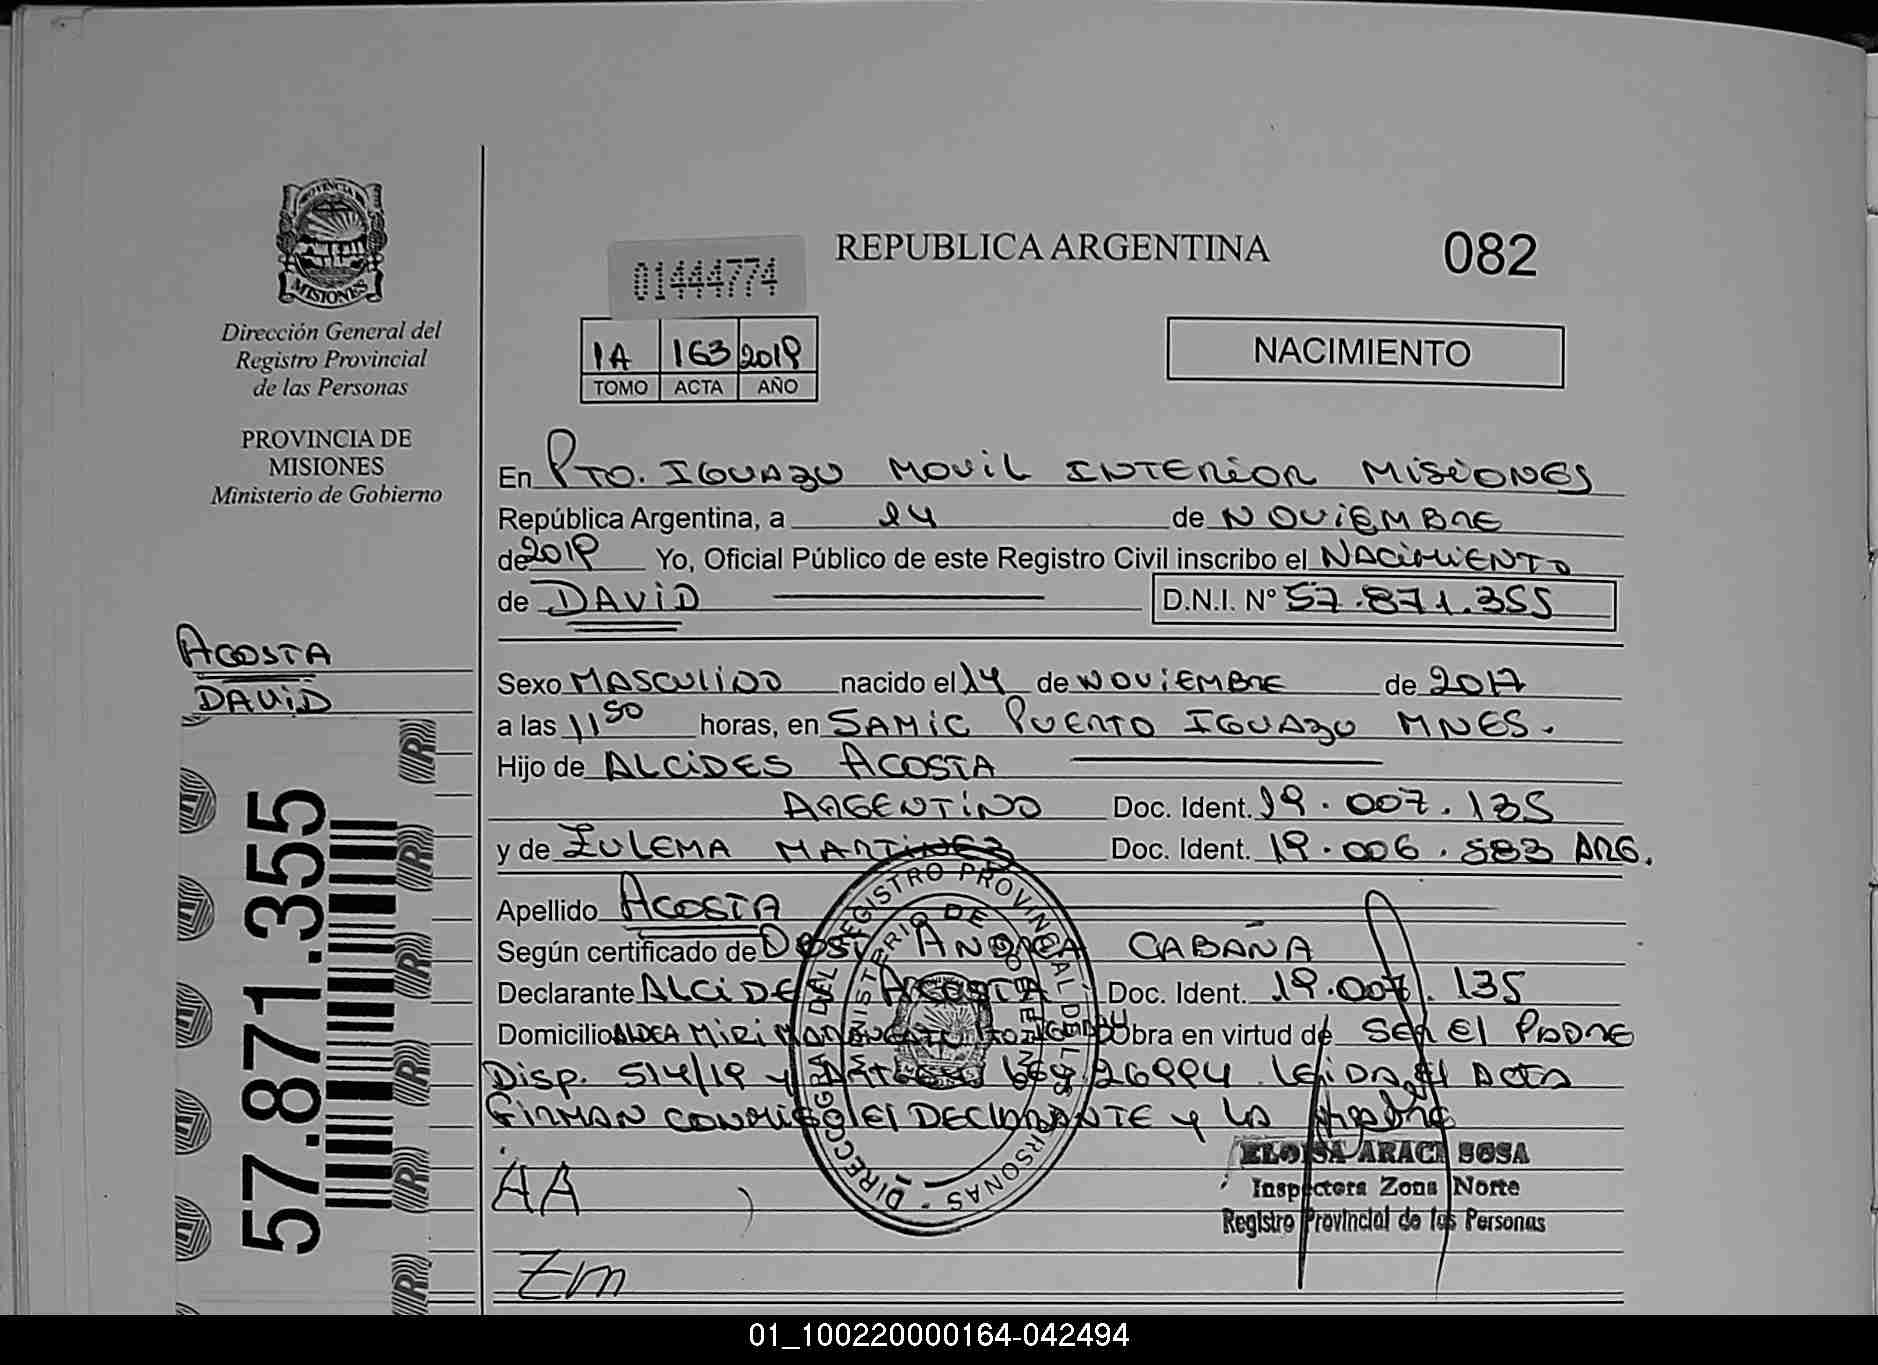 PROVINCIA DE
MISIONES
Dirección General del
Registro Provincial
de las Personas
PROVINCIA DE
MISIONES
Ministerio de Gobierno
ACOSTA
DAVID
57.871.355
01444774
REPUBLICA ARGENTINA
082
1A 163 2019
TOMO ACTA AÑO
NACIMIENTO
En PTO. IGUAZU MOVIL INTERIOR MISIONES
República Argentina, a 14 de NOVIEMBRE
de 2019 Yo, Oficial Público de este Registro Civil inscribo el NACIMIENTO
de DAVID D.N.I. Nº 57.871.355
Sexo MASCULINO nacido el 14 de NOVIEMBRE de 2017
a las 11 50 horas, en SAMIC PUERTO IGUAZU MNES.
Hijo de ALCIDES ACOSTA
ARGENTINO Doc. Ident. 19.007.135
y de ZULEMA MARTINEZ Doc. Ident. 19.006.583 ARG.
Apellido ACOSTA
Según certificado de CABAÑA
Declarante ALCIDES ACOSTA Doc. Ident. 19.007.135
Domicilio ALDEA MIRI Obra en virtud de SER El PADRE
Disp. 514/19 y 26994 LEIDA El ACTA
FIRMAN CONMIGO El DECLARANTE y LA MADRE
DIRECC. GRAL. DEL REGISTRO PROVINCIAL DE LAS PERSONAS
MINISTERIO DE GOBIERNO
AA
ELOISA ARACI SOSA
Inspectora Zona Norte
Registro Provincial de las Personas
Zm
01_100220000164-042494